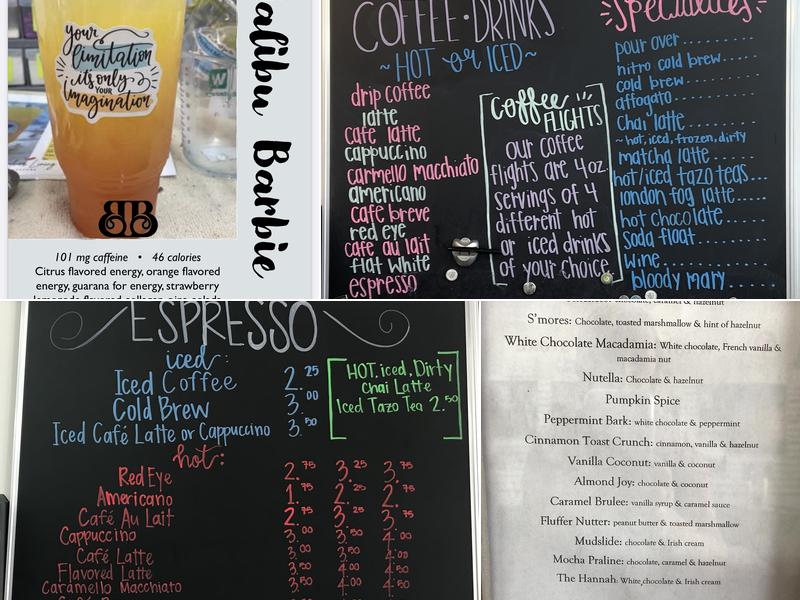 your
limitation
it's only
YOUR
imagination
BB
Malibu Barbie
101 mg caffeine • 46 calories
Citrus flavored energy, orange flavored
energy, guarana for energy, strawberry
COFFEE·DRINKS
~HOT or ICED~
drip coffee
latte
cafe latte
cappuccino
carmello macchiato
americano
cafe breve
red eye
cafe au lait
flat white
espresso
coffee
FLIGHTS
our coffee
flights are 4oz.
servings of 4
different hot
or iced drinks
of your choice
Specialties
pour over.........
nitro cold brew......
cold brew........
affogato........
chai latte.........
~hot, iced, frozen, dirty
matcha latte......
hot/iced tazo teas...
london fog latte.....
hot chocolate......
soda float......
wine..........
bloody mary.....
ESPRESSO
iced:
Iced Coffee 2.25
Cold Brew 3.00
Iced Café Latte or Cappuccino 3.50
HOT, iced, Dirty
Chai Latte
Iced Tazo Tea 2.50
hot:
Red Eye 2.75 3.25 3.75
Americano 1.75 2.25 2.75
Café Au Lait 2.75 3.25 3.75
Cappuccino 3.00 3.00 4.00
Café Latte 3.00
Flavored Latte 3.50 4.00
Caramello Macchiato 3.50 4.00 4.50
S'mores: Chocolate, toasted marshmallow & hint of hazelnut
White Chocolate Macadamia: White chocolate, French vanilla &
macadamia nut
Nutella: Chocolate & hazelnut
Pumpkin Spice
Peppermint Bark: white chocolate & peppermint
Cinnamon Toast Crunch: cinnamon, vanilla & hazelnut
Vanilla Coconut: vanilla & coconut
Almond Joy: chocolate & coconut
Caramel Brulee: vanilla syrup & caramel sauce
Fluffer Nutter: peanut butter & toasted marshmallow
Mudslide: chocolate & Irish cream
Mocha Praline: chocolate, caramel & hazelnut
The Hannah: White chocolate & Irish cream